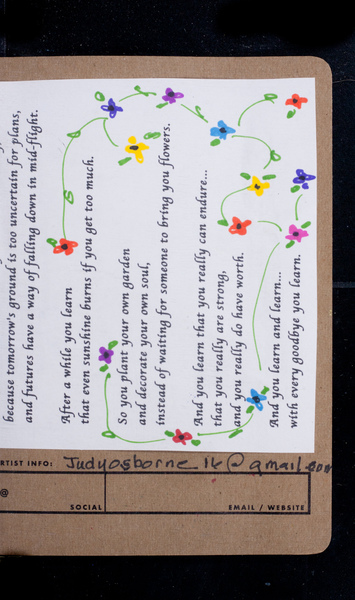 because tomorrow's ground is too uncertain for plans,
and futures have a way of falling down in mid-flight.
After a while you learn
that even sunshine burns if you get too much.
So you plant your own garden
and decorate your own soul,
instead of waiting for someone to bring you flowers.
And you learn that you really can endure...
that you really are strong,
and you really do have worth.
And you learn and learn...
with every goodbye you learn.
RTIST INFO: Judyosborne_1k@gmail.com
@
SOCIAL
EMAIL / WEBSITE